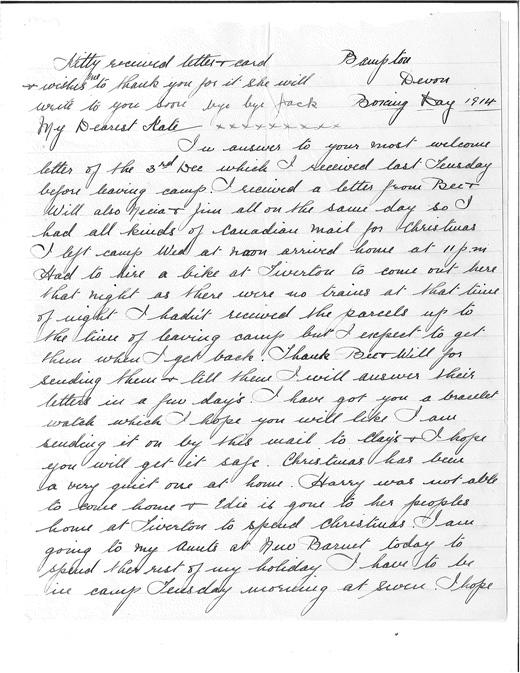 Kitty received letter & card
& wishes me to thank you for it she will
write to you soon bye bye Jack
Bampton
Devon
Boxing Day 1914
My Dearest Kate x x x x x x x x x
In answer to your most welcome
letter of the 3rd Dec which I received last Teusday
before leaving camp. I recieved a letter from Bee &
Will also Nicia & Jim all on the same day so I
had all kinds of Canadian mail for Christmas
I left camp Wed at noon arrived home at 11 p.m
Had to hire a bike at Tiverton to come out here
that night as there were no trains at that time
of night I hadn't received the parcels up to
the time of leaving camp but I expect to get
them when I get back. Thank Bee & Will for
sending them & tell them I will answer their
letters in a few day's I have got you a bracelet
watch which I hope you will like I am
sending it on by this mail to Clay's & I hope
you will get it safe. Christmas has been
a very quiet one at home. Harry was not able
to come home & Edie is gone to her peoples
home at Tiverton to spend Christmas. I am
going to my Aunts at New Barnet today to
spend the rest of my holiday I have to be
in camp Teusday morning at seven. I hope